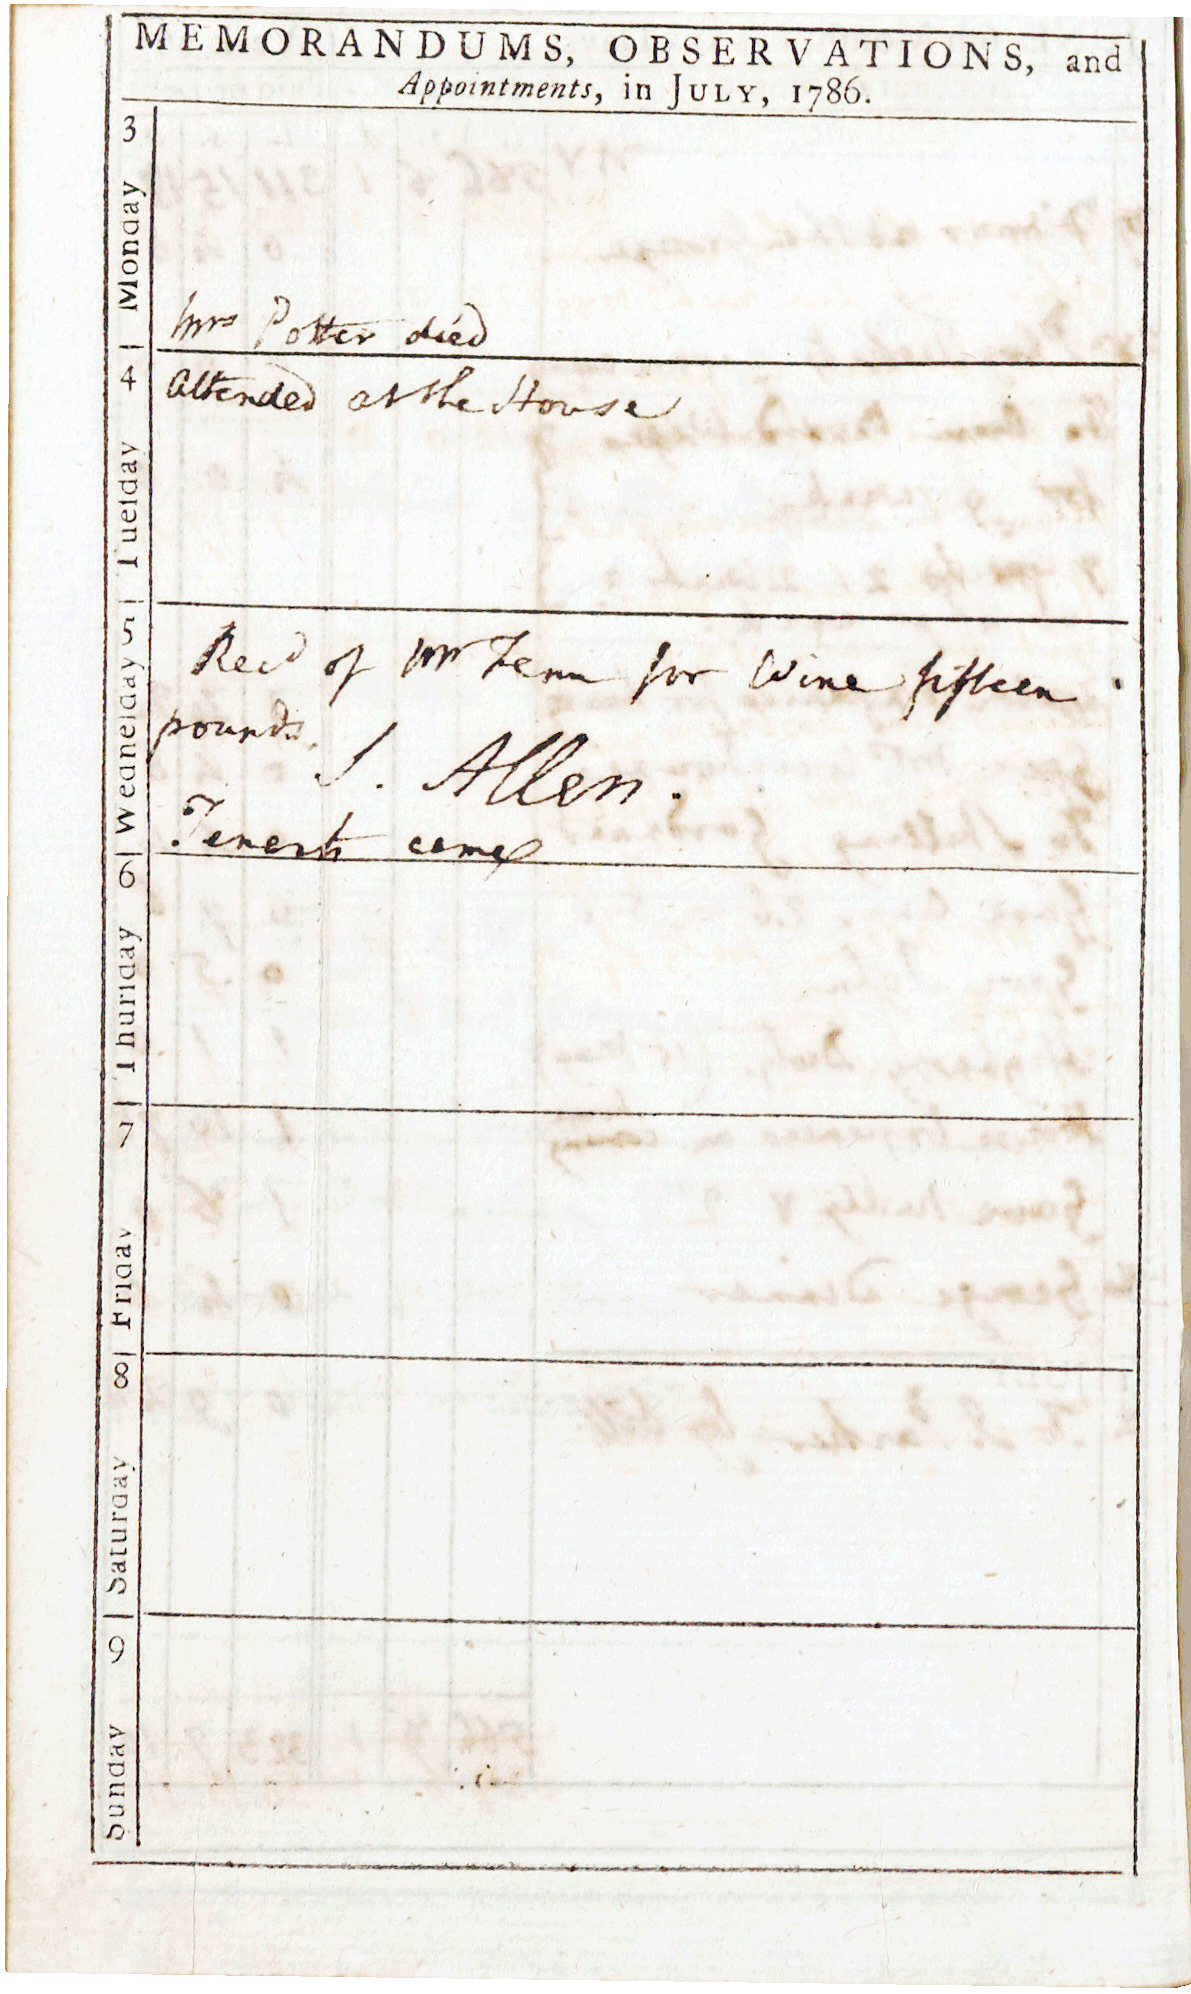 MEMORANDUMS, OBSERVATIONS, and
Appointments, in JULY, 1786.
3 Monday
Mrs Potter died
4 Tueſday
Attended at the House
5 Wedneſday
Recd of Mr Fenn for Wine fifteen
pounds.
S. Allen.
Tenants came
6 Thurſday
7 Friday
8 Saturday
9 Sunday